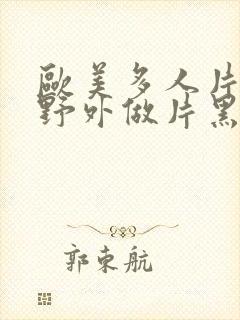 歐美多人片
野外做片黑
郭東航